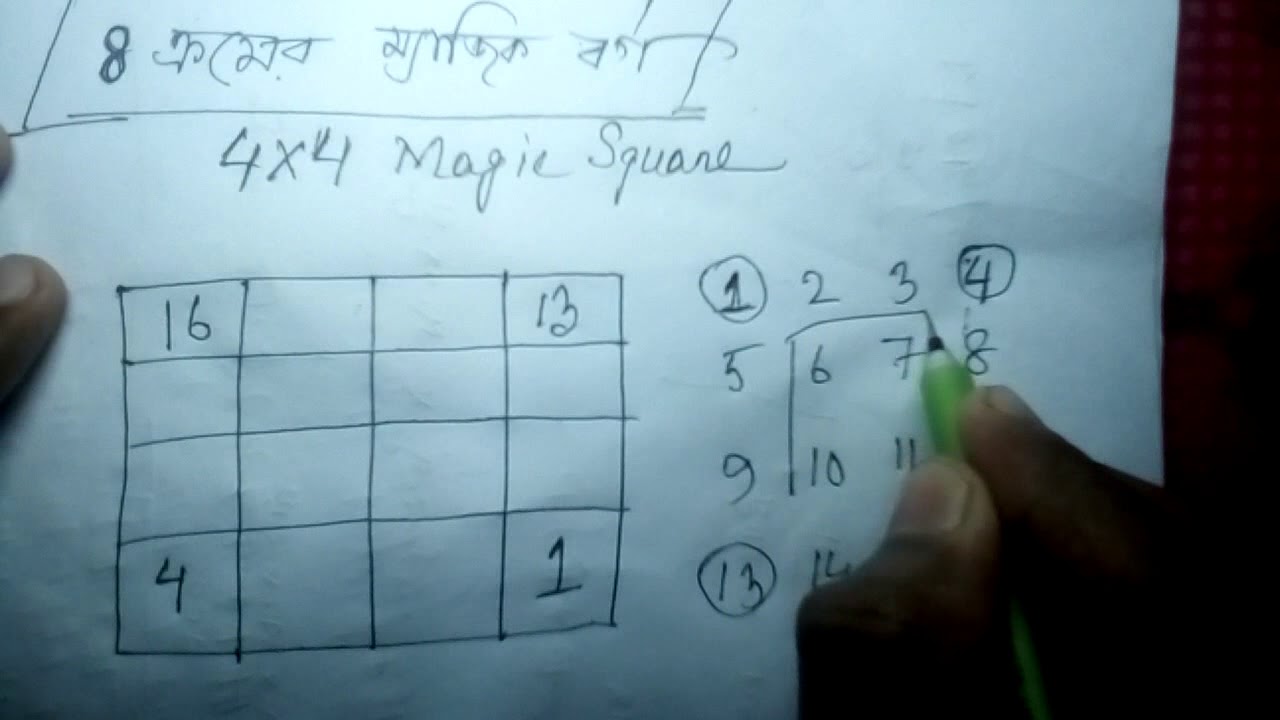 ৪ ক্রমের ম্যাজিক বর্গ
4×4 Magic Square
16 13
4 1
1 2 3 4
5 6 7 8
9 10 11
13 14